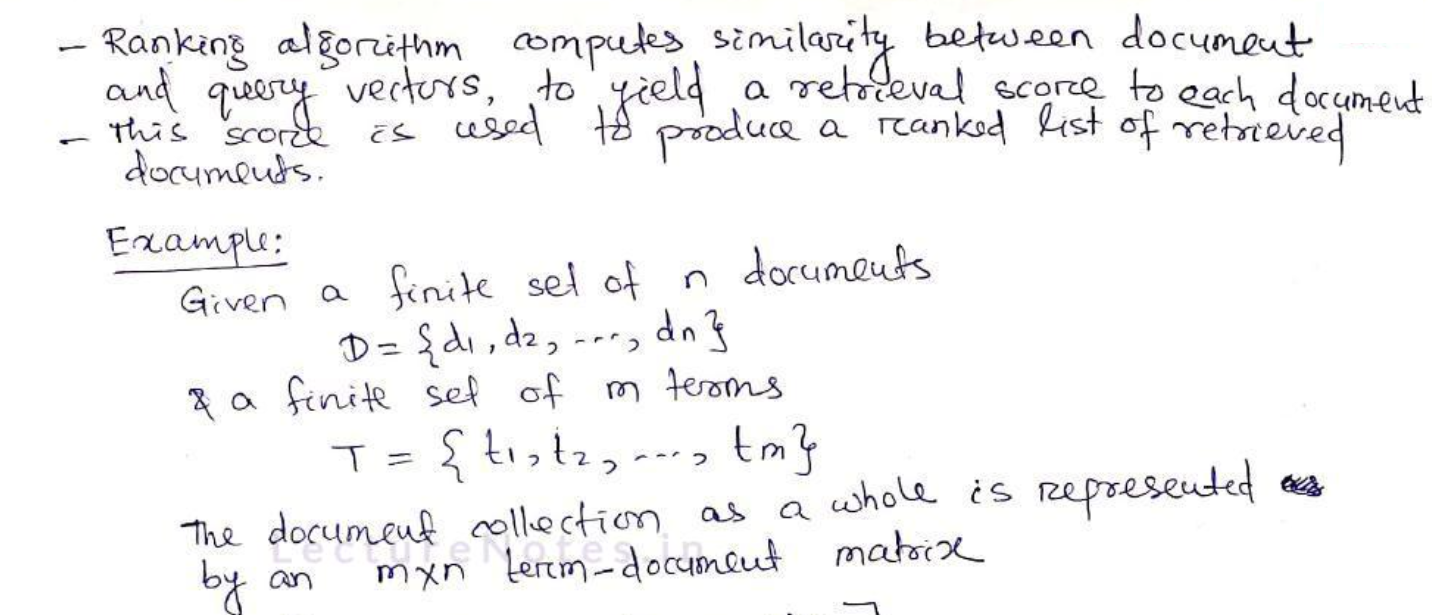 - Ranking algorithm computes similarity between document
and query vectors, to yield a retrieval score to each document
- This score is used to produce a ranked list of retrieved
documents.
Example:
Given a finite set of n documents
D = {d1, d2, ---, dn}
& a finite set of m terms
T = {t1, t2, ---, tm}
The document collection as a whole is represented
LectureNotes.in
by an m×n term-document matrix